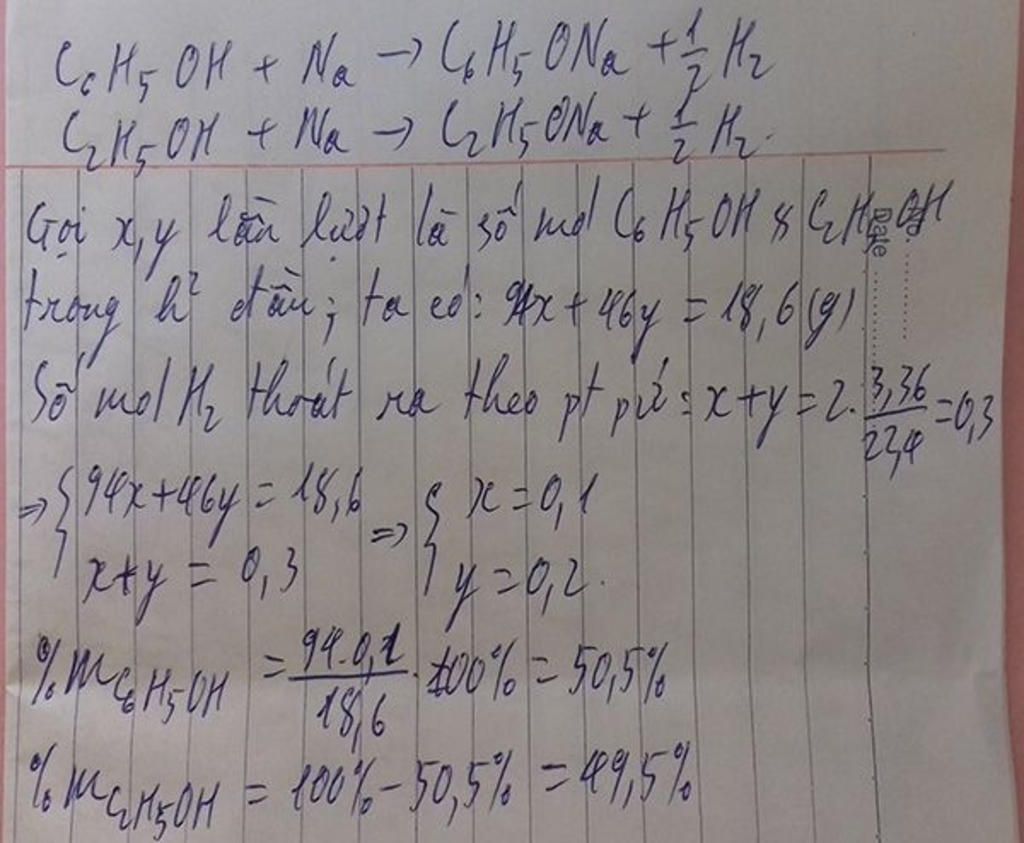 C₆H₅OH + Na → C₆H₅ONa + 1/2 H₂
C₂H₅OH + Na → C₂H₅ONa + 1/2 H₂.
Gọi x, y lần lượt là số mol C₆H₅OH & C₂H₅OH
Date
trong h² đầu; ta có: 94x + 46y = 18,6 (g)
Số mol H₂ thoát ra theo pt pứ: x + y = 2. 3,36/22,4 = 0,3
=> { 94x + 46y = 18,6 => { x = 0,1
x + y = 0,3 y = 0,2.
%mC₆H₅OH = 94.0,1/18,6 . 100% = 50,5%
%mC₂H₅OH = 100% - 50,5% = 49,5%